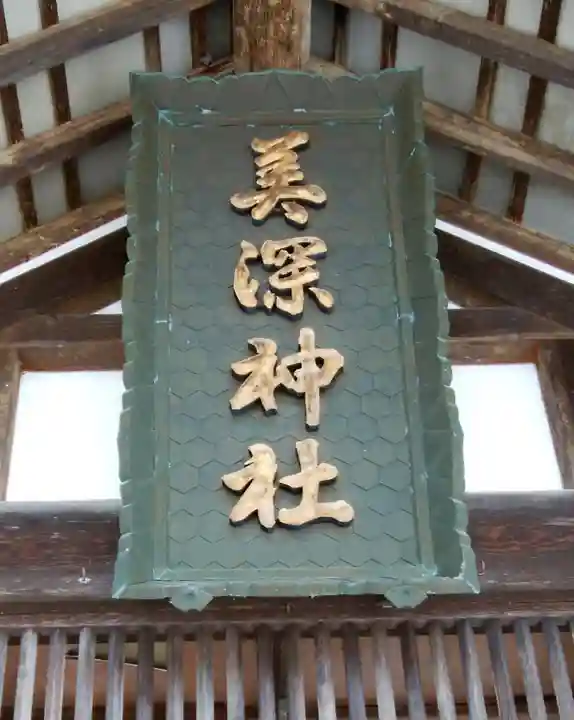 美深神社